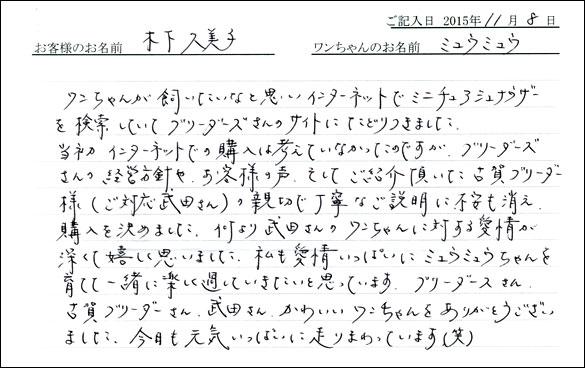 ご記入日 2015年 11 月 8 日
お客様のお名前 木下久美子 ワンちゃんのお名前 ミュウミュウ
ワンちゃんが飼いたいなと思いインターネットでミニチュアシュナウザー
を検索していてブリーダーズさんのサイトにたどりつきました。
当初インターネットでの購入は考えていなかったのですが、ブリーダーズ
さんの経営方針や、お客様の声、そしてご紹介頂いた古賀ブリーダー
様(ご対応武田さん)の親切で丁寧なご説明に不安も消え、
購入を決めました。何より武田さんのワンちゃんに対する愛情が
深くて嬉しく思いました。私も愛情いっぱいにミュウミュウちゃんを
育てて一緒に楽しく過していきたいと思っています。ブリーダーズさん、
古賀ブリーダーさん、武田さん、かわいいワンちゃんをありがとうござい
ました。今日も元気いっぱいに走りまわっています(笑)